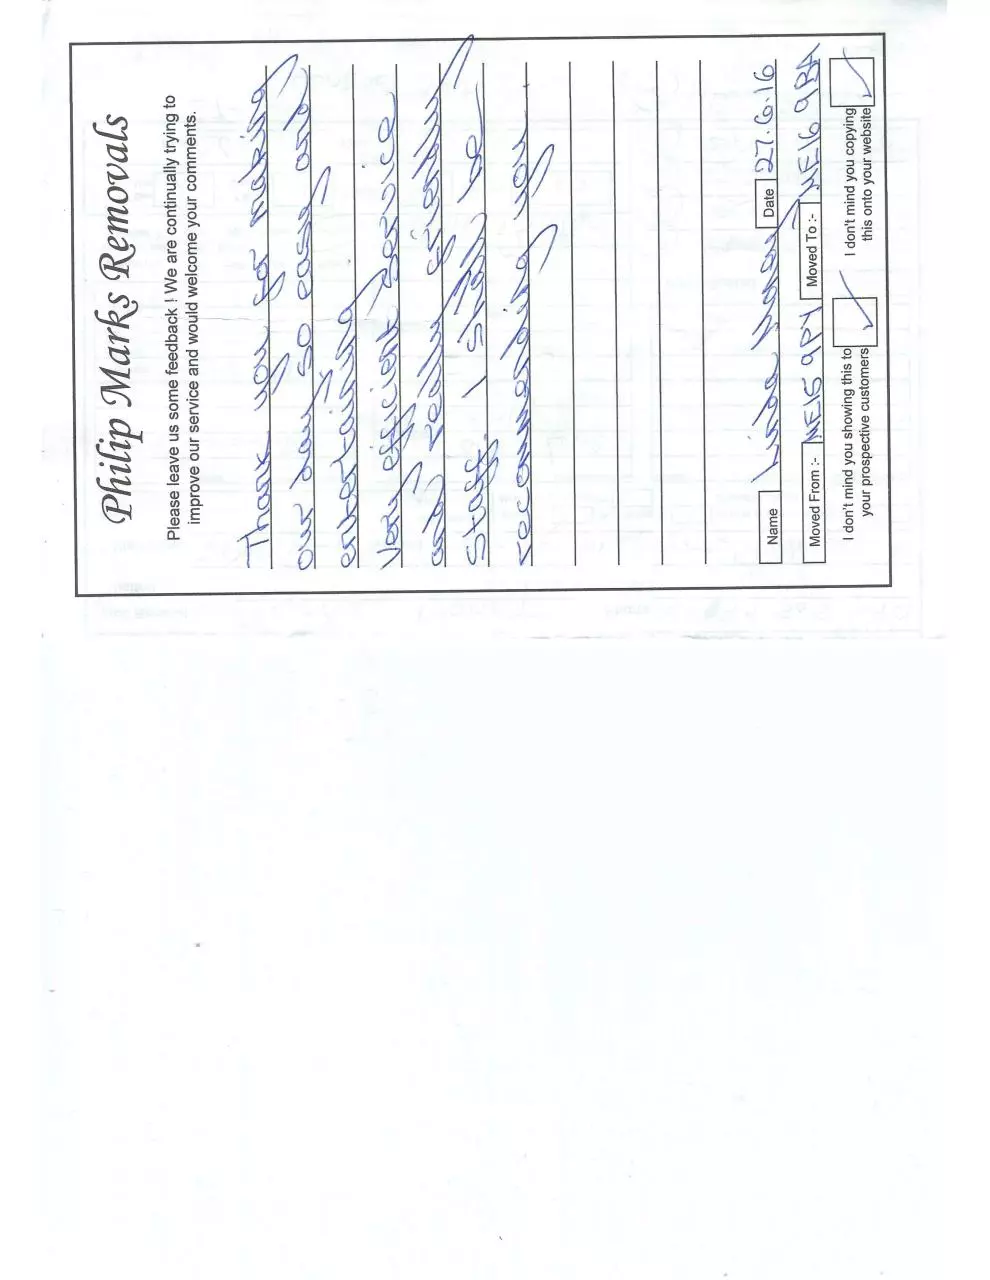 Philip Marks Removals
Please leave us some feedback ! We are continually trying to
improve our service and would welcome your comments.
Thank you for making
our day so easy and
entertaining
Very efficient service
and really friendly
staff. I shall be
recommending you
Name Linda Date 27.6.16
Moved From :- NE15 9PY Moved To :- NE16 9BA
I don't mind you showing this to
your prospective customers
I don't mind you copying
this onto your website